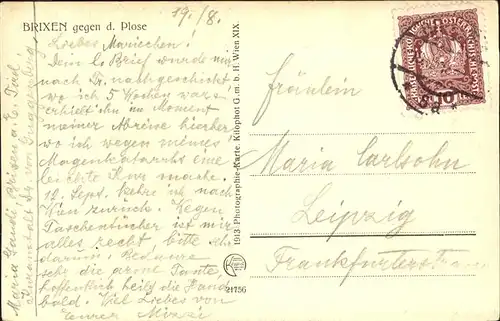 BRIXEN gegen d. Plose
19./8.
Liebes Mariechen!
Dein l. Brief wurde mir
nach Dr. nachgeschickt
wo ich 5 Wochen war
erhielt ihn im Moment
meiner Abreise hierher
wo ich wegen meines
Magenkatarrhs eine
leichte Kur mache.
19. Sept. kehre ich nach
Wien zurück. Wegen
Taschentücher ist mir
alles recht bitte
darum. Bedaure
sehr die arme Tante,
hoffentlich heilt die Hand
bald. Viel Liebes von
Eurer Mizzi
Maria Brixen a. E. Tirol
Kuranstalt Dr. von Guggenberg
1913 Photographie-Karte. Kilophot G. m. b. H. Wien XIX.
21756
10
Fräulein
Maria Carlsohn
Leipzig
Frankfurterstr.